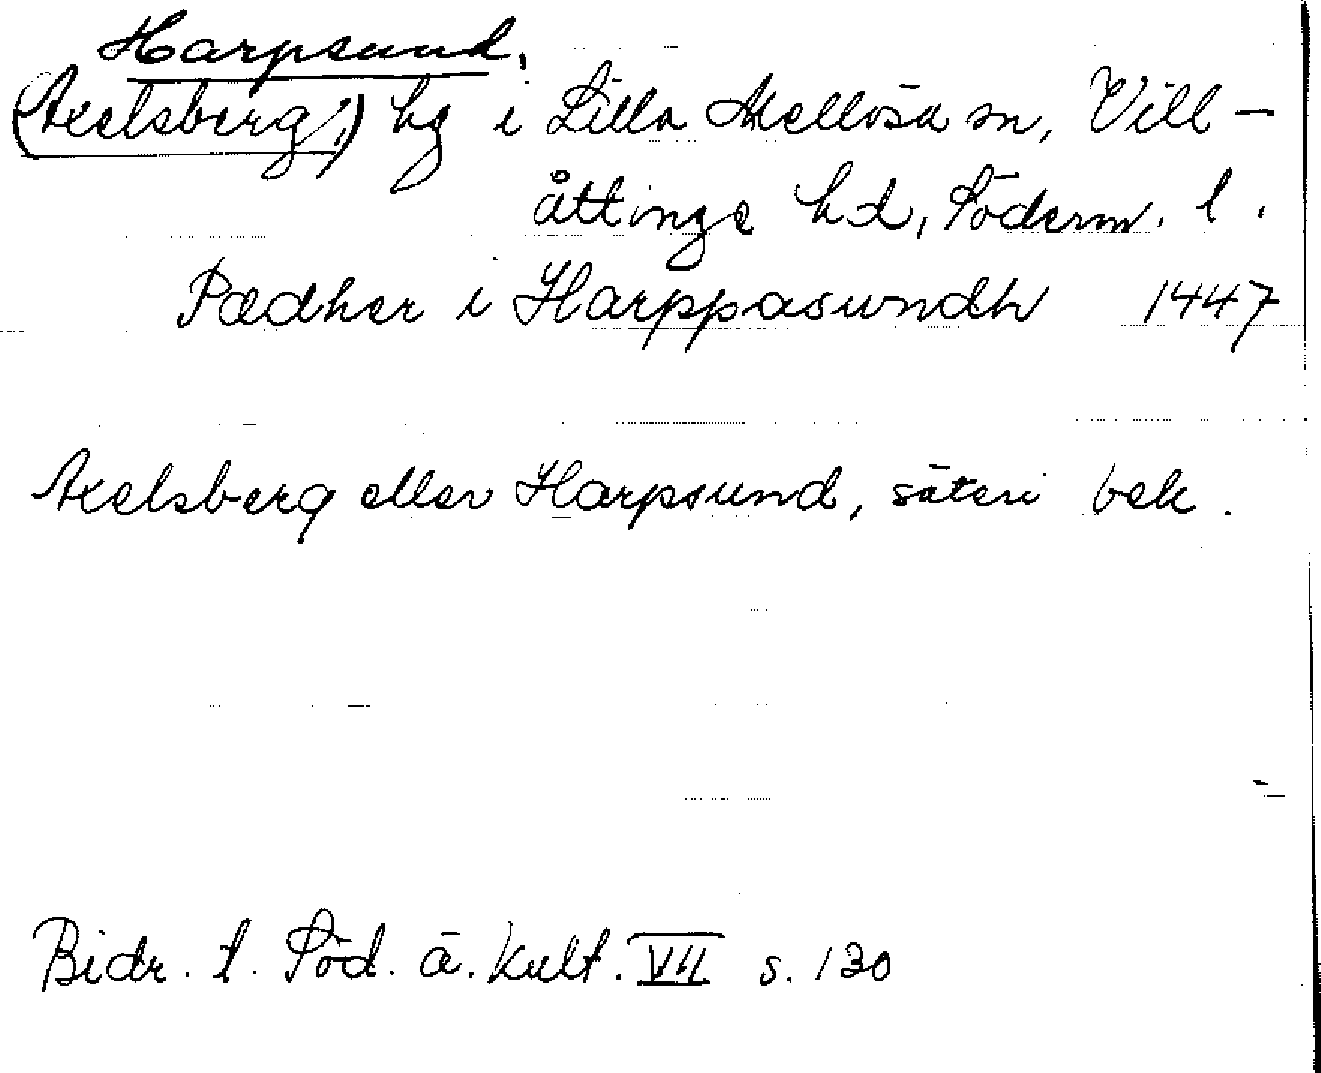 Harpsund.
(Axelsberg,) hg i Lilla Mellösa sn, Vill-
åttinge hd, Söderm. l.
Pædher i Harppasundh 1447
Axelsberg eller Harpsund, säteri bek.
Bidr. t. Söd. ä. kult. VII s. 130